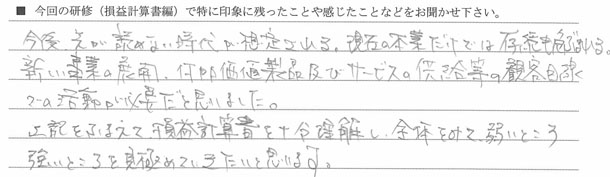 ■ 今回の研修（損益計算書編）で特に印象に残ったことや感じたことなどをお聞かせ下さい。
今後、先が読めない時代が想定される。現在の本業だけでは存続も危ぶまれる。
新しい事業の展開、付加価値製品及びサービスの供給等の顧客目線
での活動が必要だと思いました。
上記をふまえて損益計算書を十分理解し、全体をみて、弱いところ
強いところを見極めていきたいと思います。